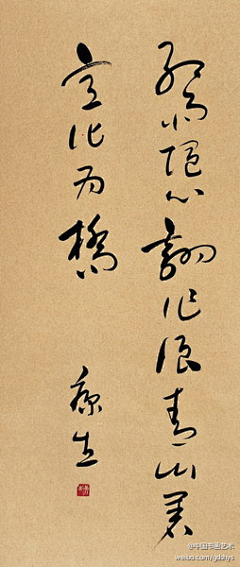 红雨随心翻作浪青山着
意化为橋
康生
@中国书画艺术